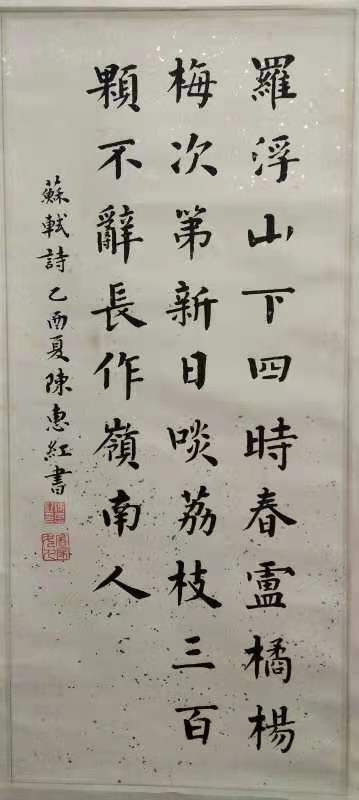 羅浮山下四時春盧橘楊
梅次第新日啖荔枝三百
顆不辭長作嶺南人
蘇軾詩乙酉夏陳惠紅書